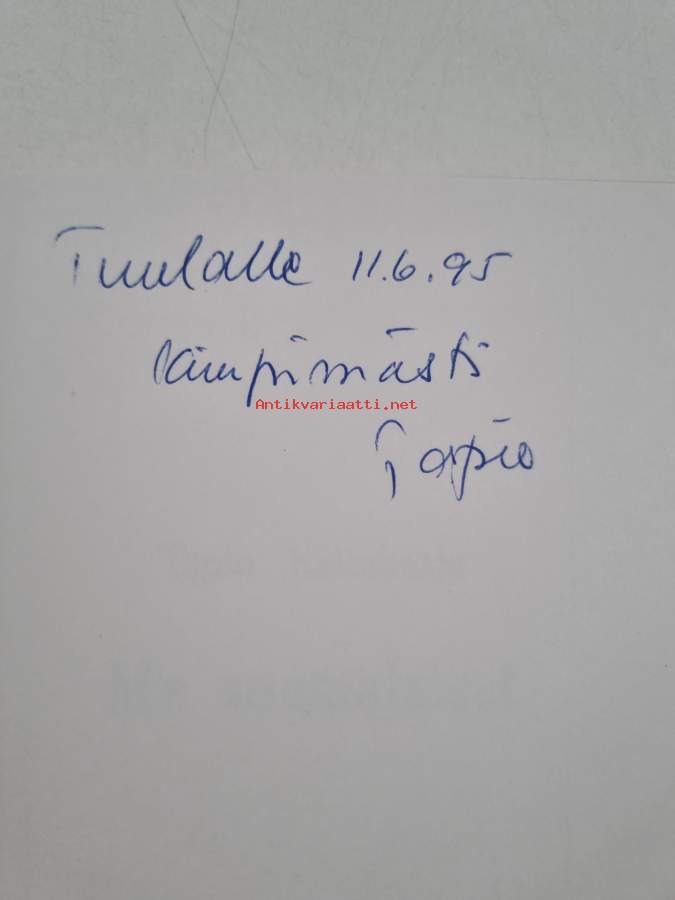 Tuulalle 11.6.95
lämpimästi
Antikvariaatti.net
Tapio
Tapio